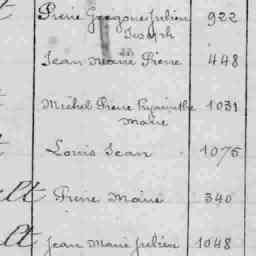 Pierre Gregoire Julien 922
Joseph
Jean Marie Pierre 448
Michel Pierre Hyacinthe 1031
Marie
Louis Jean 1076
Pierre Marie 340
Jean Marie Julien 1048